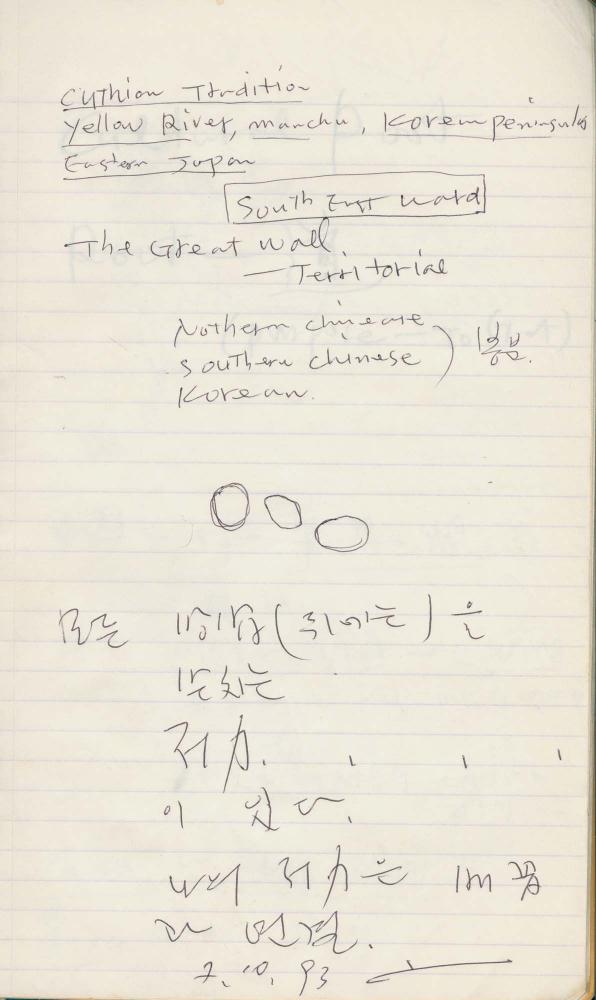 Cythian Tradition
Yellow River, manchu, Korean peninsula
Eastern Japan
South East ward
The Great wall
— Territorial
Nothern chinease
Southern chinese
Korean.
모든
을
는
저력.
이 있다.
나의 저력은
과 연결.
7. 10. 93